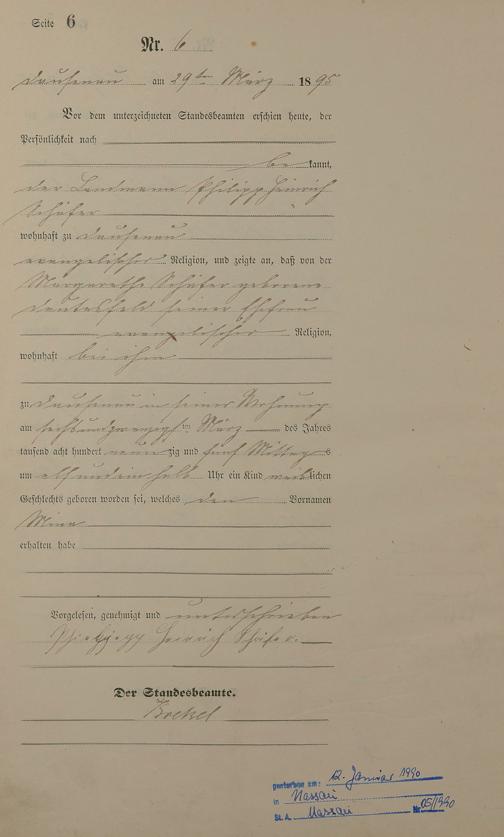 Seite 6
Nr. 6
Dausenau am 29ten März 1895
Vor dem unterzeichneten Standesbeamten erschien heute, der
Persönlichkeit nach
bekannt,
der Landmann Philipp Heinrich
Schäfer
wohnhaft zu Dausenau
evangelischer Religion, und zeigte an, daß von der
Margarethe Schäfer geborene
seiner Ehefrau
evangelischer Religion,
wohnhaft bei ihm
zu Dausenau in seiner Wohnung
am sechsundzwanzigsten März des Jahres
tausend acht hundert neunzig und fünf Mittags
um elf und ein halb Uhr ein Kind weiblichen
Geschlechts geboren worden sei, welches den Vornamen
Mina
erhalten habe
Vorgelesen, genehmigt und unterschrieben
Philipp Heinrich Schäfer.
Der Standesbeamte.
gestorben am: 12. Januar 1990
in Nassau
St. A. Nassau Nr. 05/1990